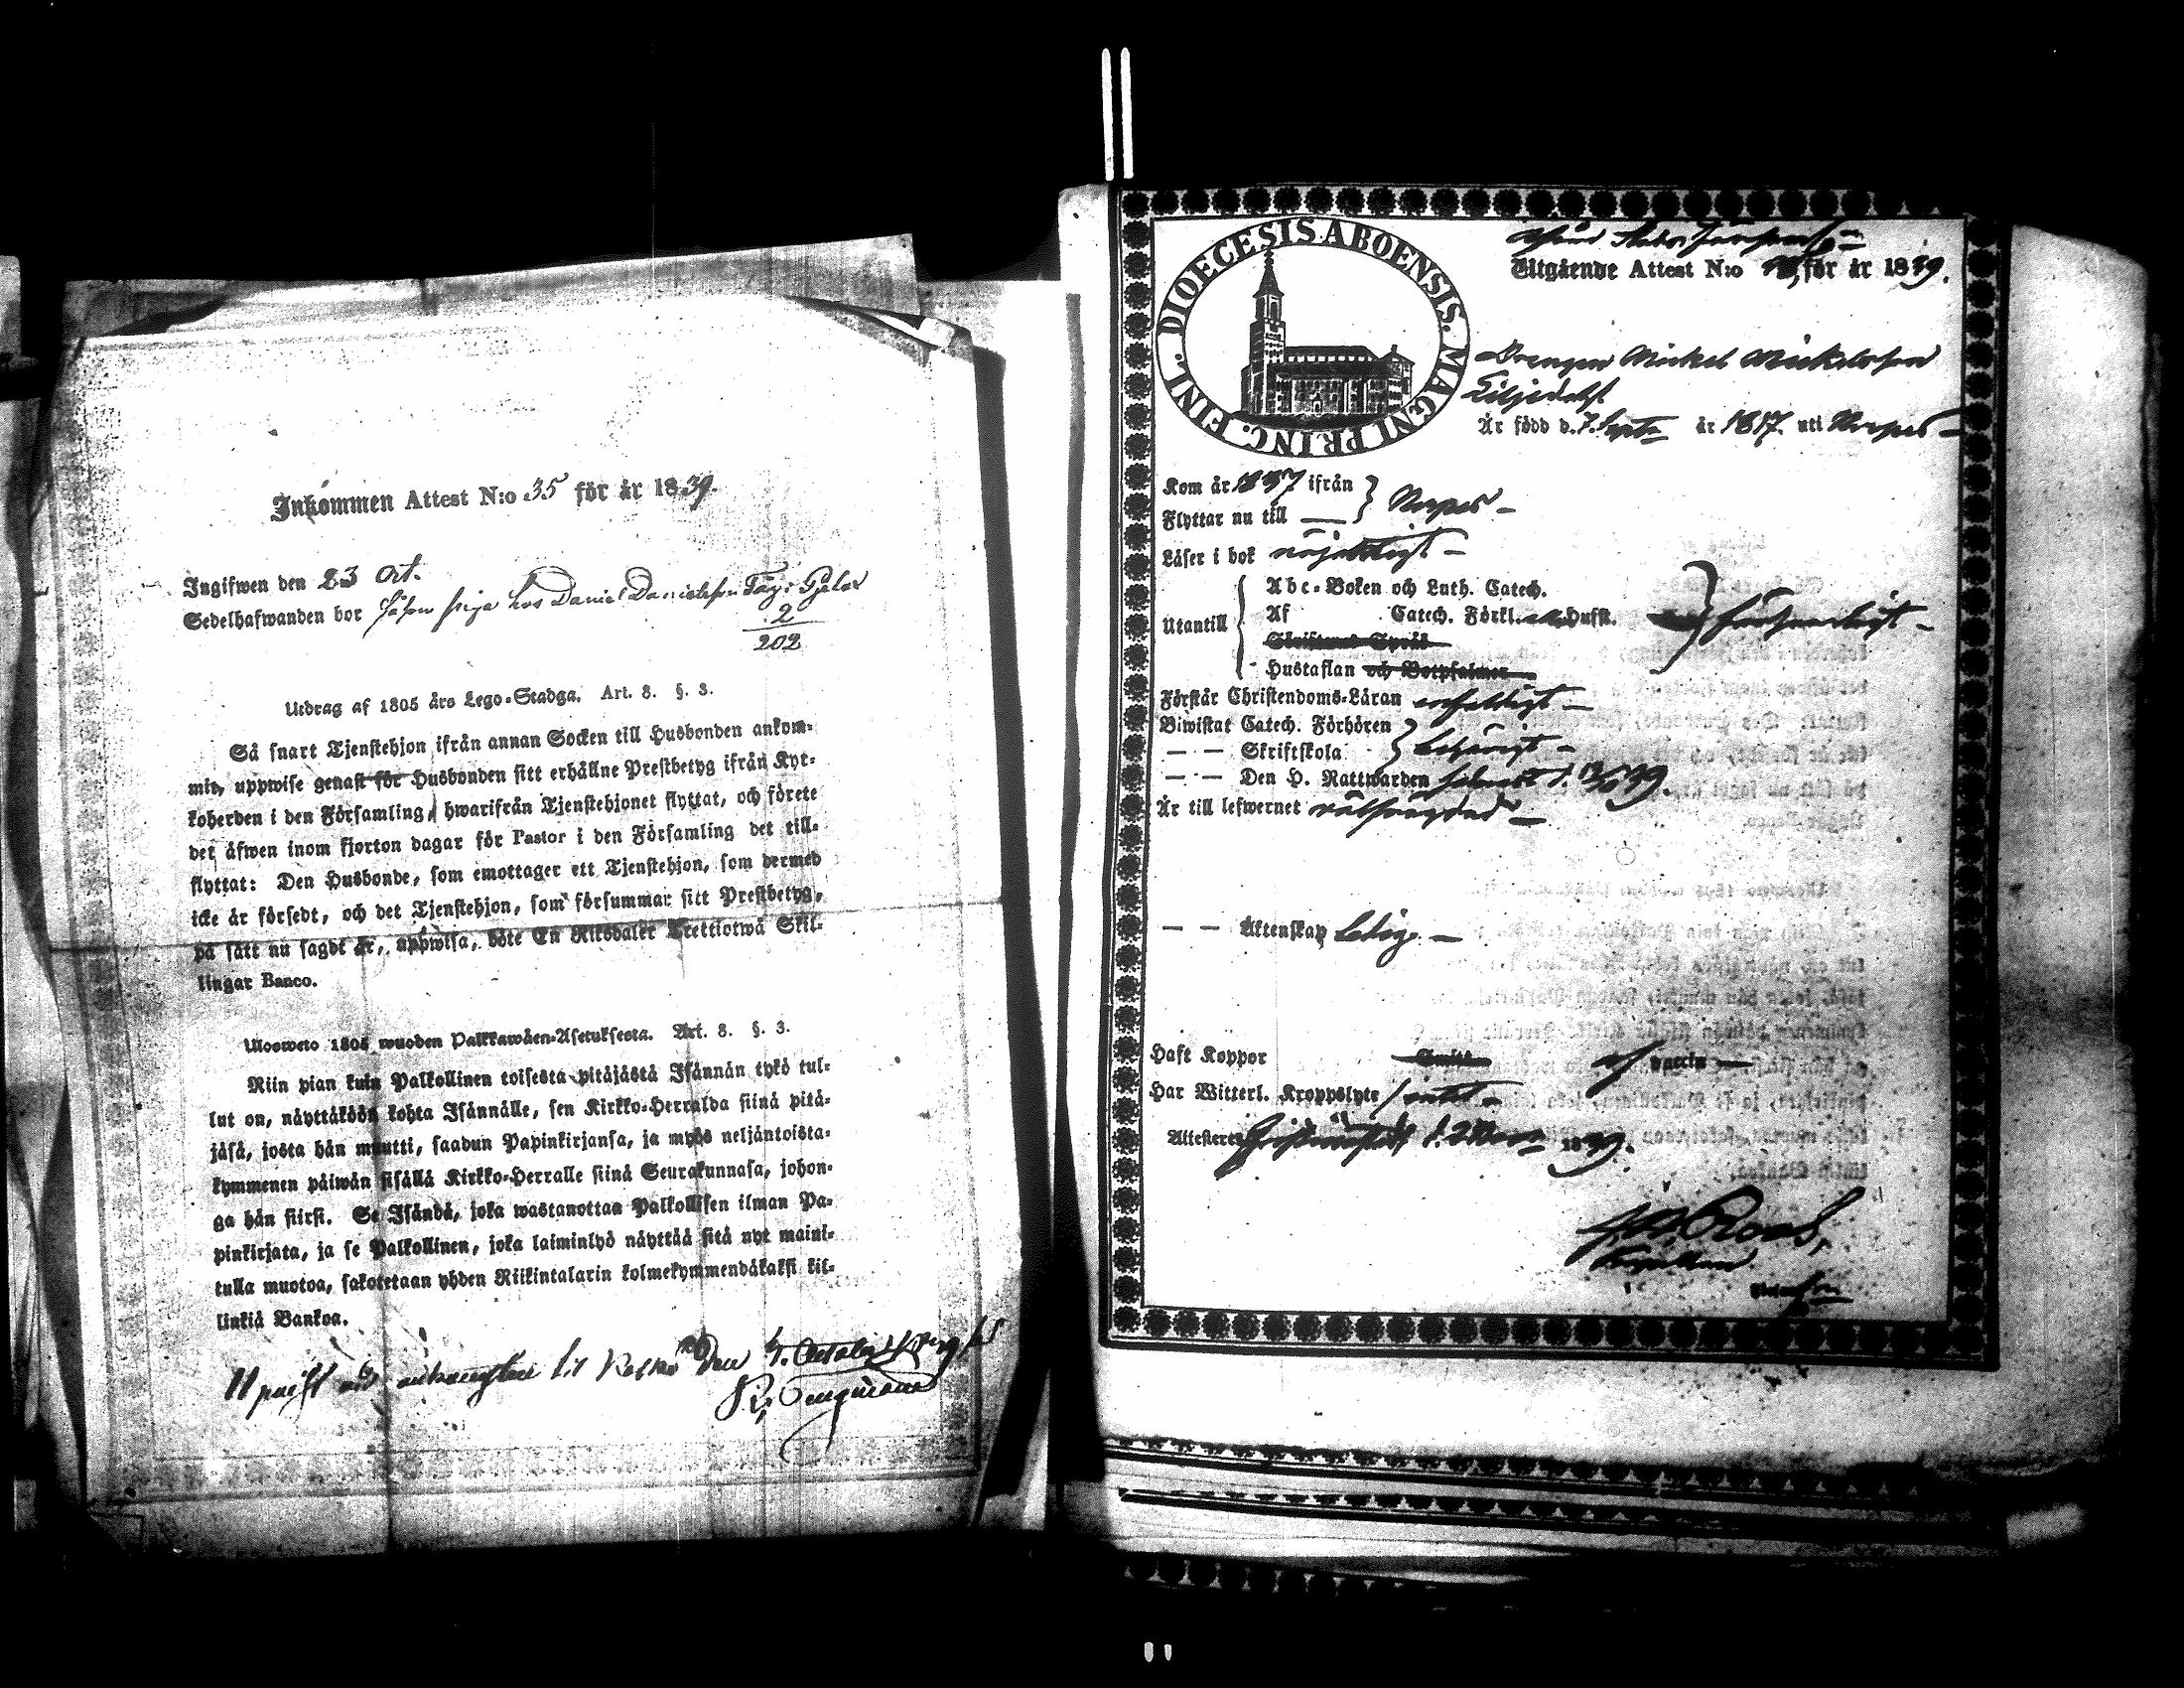 Inkommen Attest N:o 35 för år 1839.
Ingifwen den 23 Oct.
Sedelhafwanden bor hos Daniel Danielsson
2
202
Utdrag af 1805 års Lego-Stadga. Art. 8. §. 3.
Så snart Tjenstehjon ifrån annan Socken till Husbonden ankom-
mit, uppwise genast för Husbonden sitt erhållne Prestbetyg ifrån Kyr-
koherden i den Församling, hwarifrån Tjenstehjonet flyttat, och förete
det äfwen inom fjorton dagar för Pastor i den Församling det till-
flyttat: Den Husbonde, som emottager ett Tjenstehjon, som dermed
icke är försedt, och det Tjenstehjon, som försummar sitt Prestbetyg,
på sätt nu sagdt är, uppwisa, böte En Riksdaler Trettiotwå Skil-
lingar Banco.
Ulosweto 1805 wuoden Palkkawäen-Asetuksesta. Art. 8. §. 3.
Niin pian kuin Palkollinen toisesta pitäjästä Isännän tykö tul-
lut on, näyttäköön kohta Isännälle, sen Kirkko-Herralda siinä pitä-
jäsä, josta hän muutti, saadun Papinkirjansa, ja myös neljäntoista-
kymmenen päiwän sisällä Kirkko-Herralle siinä Seurakunnasa, johon-
ga hän siirsi. Se Isändä, joka wastanottaa Palkollisen ilman Pa-
pinkirjata, ja se Palkollinen, joka laiminlyö näyttää sitä nyt maini-
tulla muotoa, sakotetaan yhden Riikintalarin kolmekymmendäkaksi kil-
linkiä Bankoa.
DIOECESIS ABOENSIS. MAGNI PRINC. FINL.
Utgående Attest N:o för år 1839.
Drengen Mickel Mickelsson
Liljedahl
Är född d. 7. Septr år 1817. uti Nerpes
Kom år 1837 ifrån
Flyttar nu till Nerpes
Läser i bok nöjaktligt
Utantill
Abc-Boken och Luth. Catech.
Af Catech. Förkl. Husft.
Skriftenes Språk
Hustaflan och Botpsalmer
försvarligt
Förstår Christendoms-Läran enfaldigt
Biwistat Catech. Förhören
— — Skriftskola behörigt
— — Den H. Nattwarden
Är till lefwernet
— — Äktenskap ledig.
Haft Koppor vaccin
Har Witterl. Kroppslyte intet
Attesteres 1839.